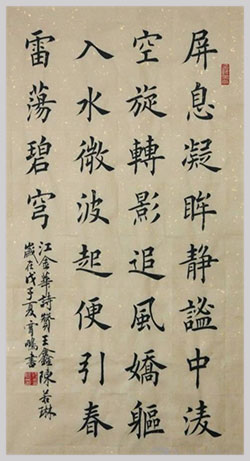 屏息凝眸靜謐中淩
空旋轉影追風嬌軀
入水微波起便引春
雷蕩碧穹
江金華詩贊王鑫陳若琳
歲在戊子夏鵬書